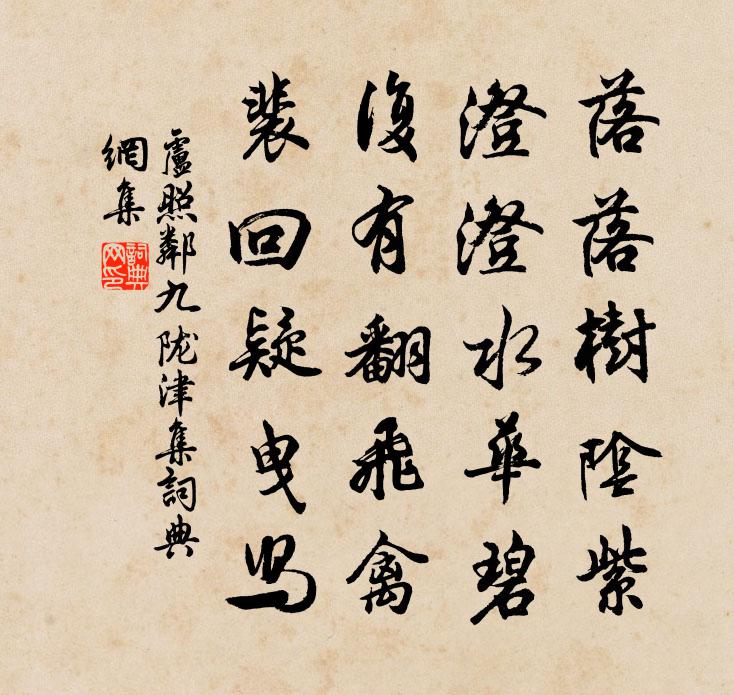 落落樹陰紫
澄澄水華碧
復有翻飛禽
裴回疑曳舄
盧照鄰九陇津集詞典
網集
詞典
网印